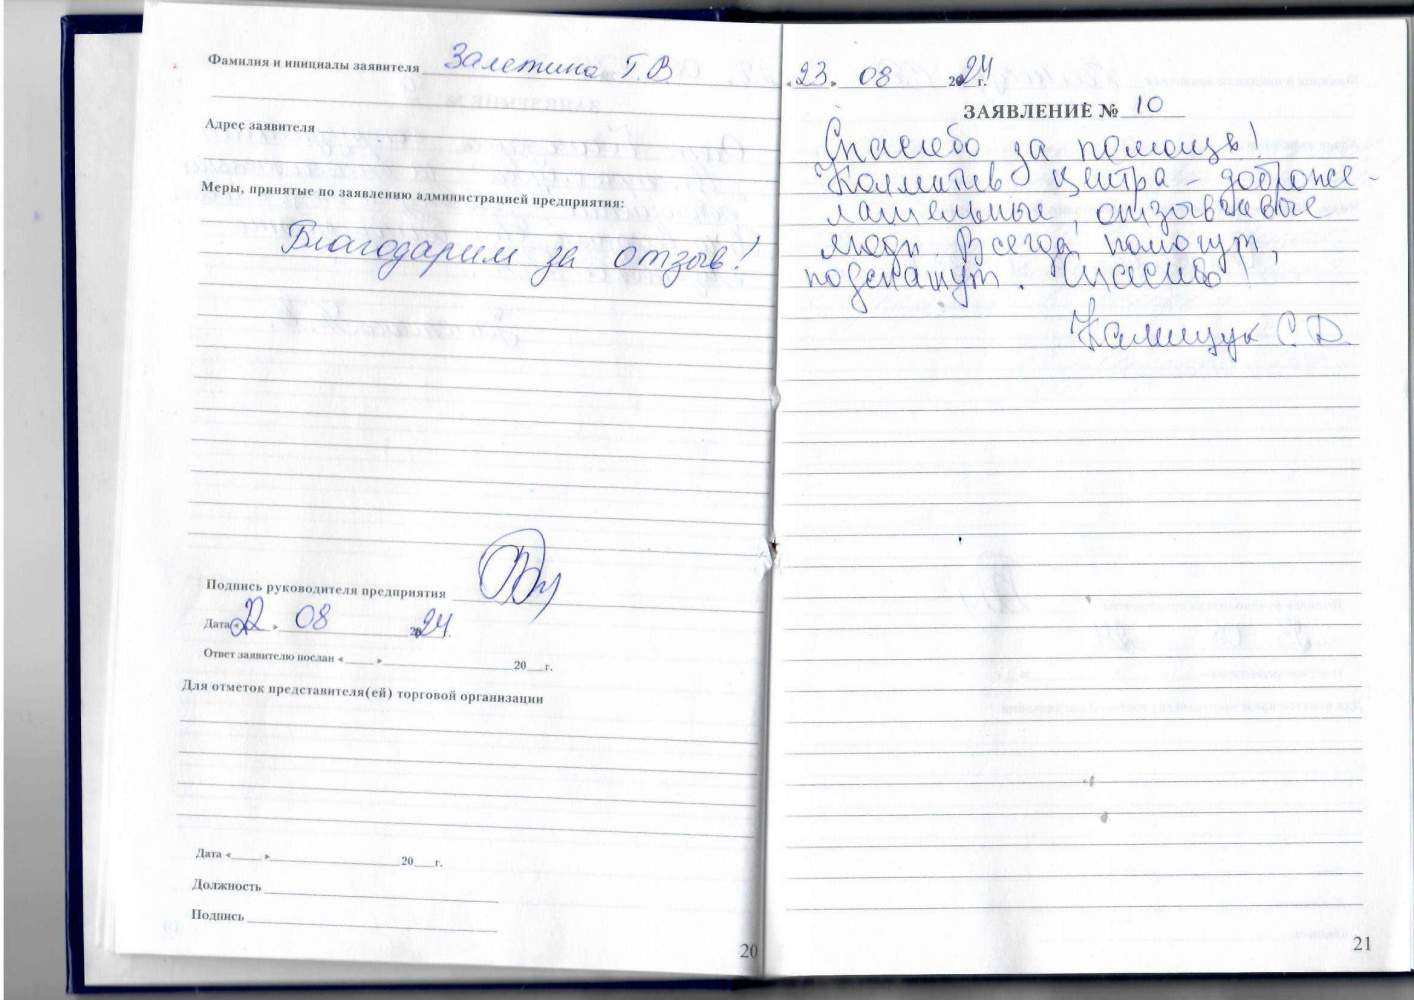 Фамилия и инициалы заявителя Залетина Т.В
Адрес заявителя
Меры, принятые по заявлению администрацией предприятия:
Благодарим за отзыв!
Подпись руководителя предприятия
Дата « 22 » 08 2024г.
Ответ заявителю послан « » 20 г.
Для отметок представителя(ей) торговой организации
Дата « » 20 г.
Должность
Подпись
20
« 23 » 08 2024 г.
ЗАЯВЛЕНИЕ № 10
Спасибо за помощь!
Коллектив центра - доброже-
лательные, отзывчивые
люди. Всегда помогут,
подскажут. Спасибо
Калищук С.Д.
21